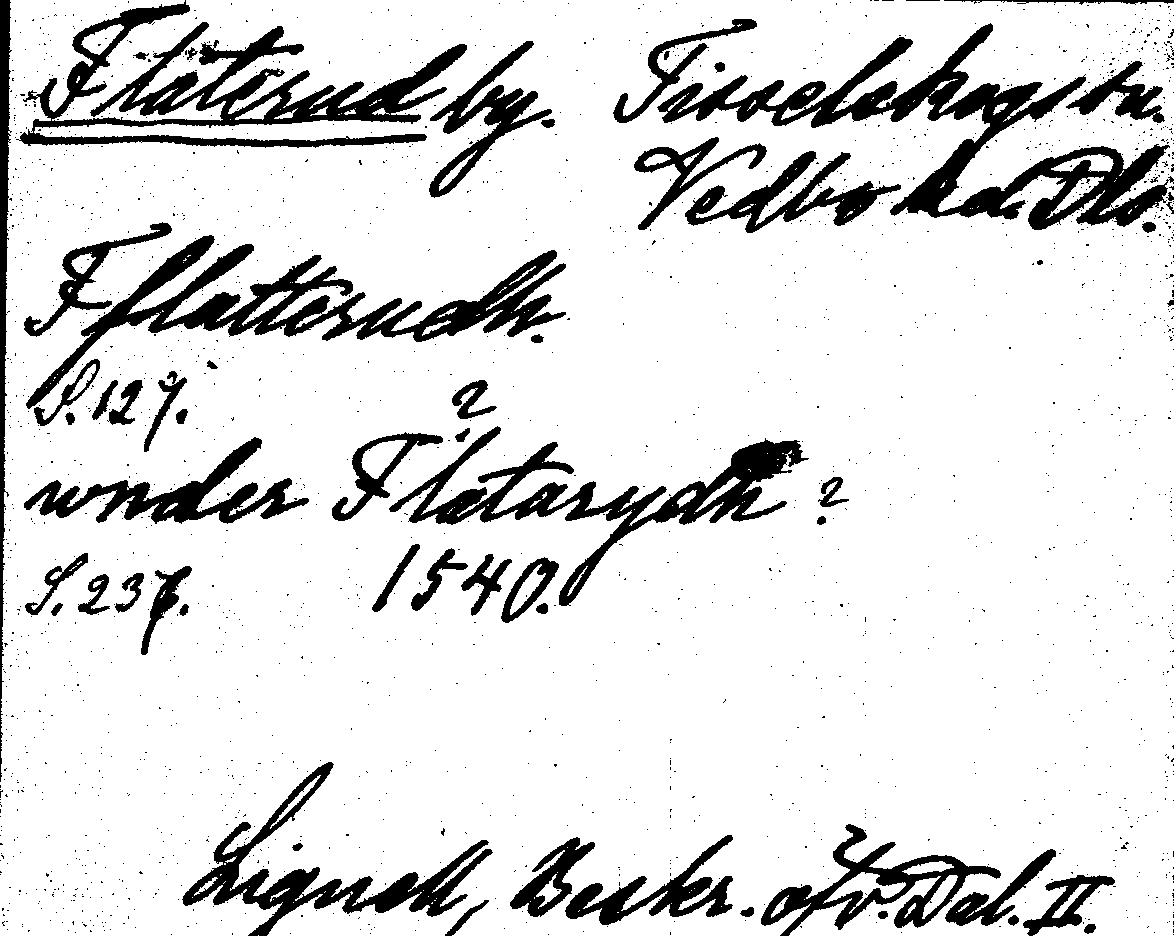 Flaterud by. Tisselskogs sn.
Vedbo hd. Dls.
Fflatterudh.
S. 127.
?
wnder Flatarydh ?
S. 237. 1540.
Lignell, Beskr. öfv. Dal. II.